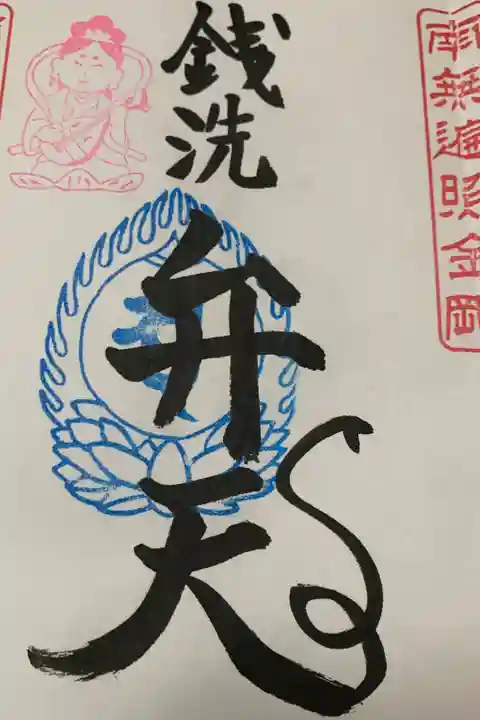 南無遍照金剛
銭洗
弁天